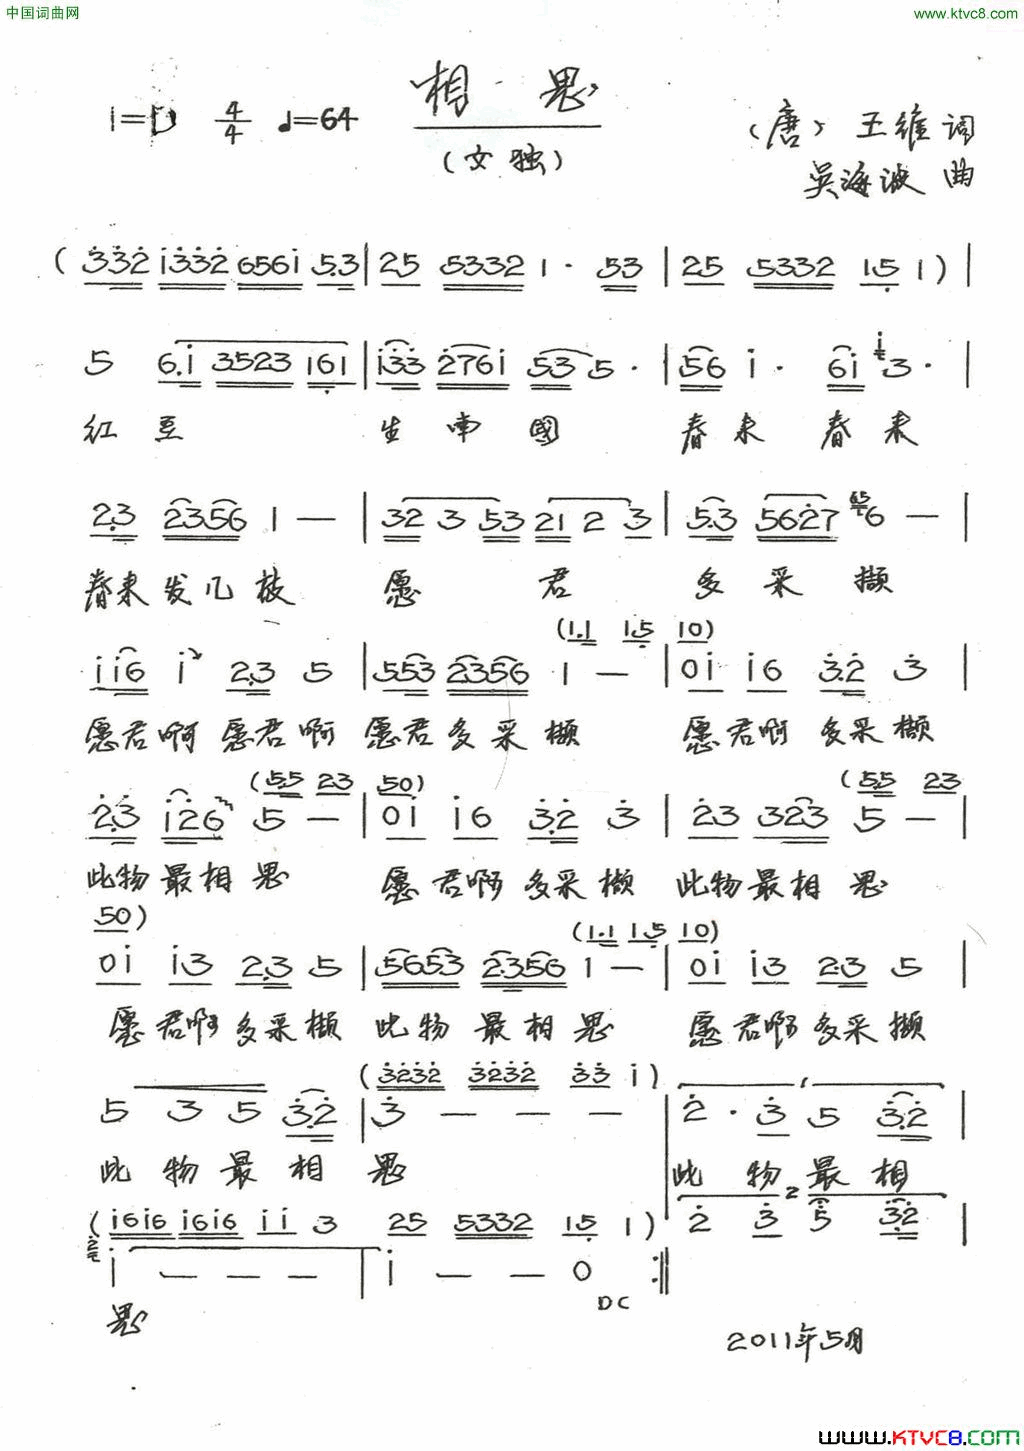 中国词曲网
www.ktvc8.com
相思
1=D 4/4 ♩=64
(女独)
(唐) 王维 词
吴海波 曲
(3332 1332 6561 5.3 | 25 5332 1· 53 | 25 5332 15 1) |
5 6.i 3523 161 | i33 276i 53 5· | 56 i· 6i 3· |
红豆 生南國 春来 春来
2.3 2356 1 — | 32 3 53 21 2 3 | 5.3 5627 6 — |
春来发几枝 愿 君 多采撷
(1.1 1.5 10)
ii6 i 2.3 5 | 553 2356 1 — | 0i i6 3.2 3 |
愿君啊 愿君啊 愿君多采撷 愿君啊 多采撷
(5.5 23 50) (5.5 23
2.3 i26 5 — | 0i i6 3.2 3 | 23 323 5 — |
此物最相思 愿君啊多采撷 此物最相思
50) (1.1 1.5 10)
0i i3 2.3 5 | 5653 2.356 1 — | 0i i3 2.3 5 |
愿君啊多采撷 此物最相思 愿君啊多采撷
(3232 3232 33 i)
5 3 5 3.2 | 3 — — — | 2· 3 5 3.2 |
此物最相思 此物最相
(i6i6 i6i6 ii 3 25 5332 15 1) 2 3 5 3.2 |
i — — — | i — — 0 :||
思
DC
2011年5月
www.KTVC8.com